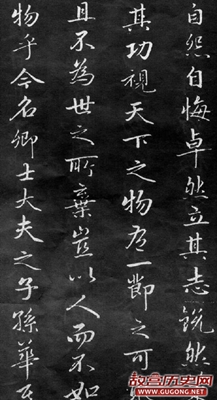 自然自悔卓然立其志銳然
其功視天下之物有一節之可
且不為世之所棄豈以人而不如
物乎今名卿士大夫之子孫華其
故宫历史网
www.gugong.net